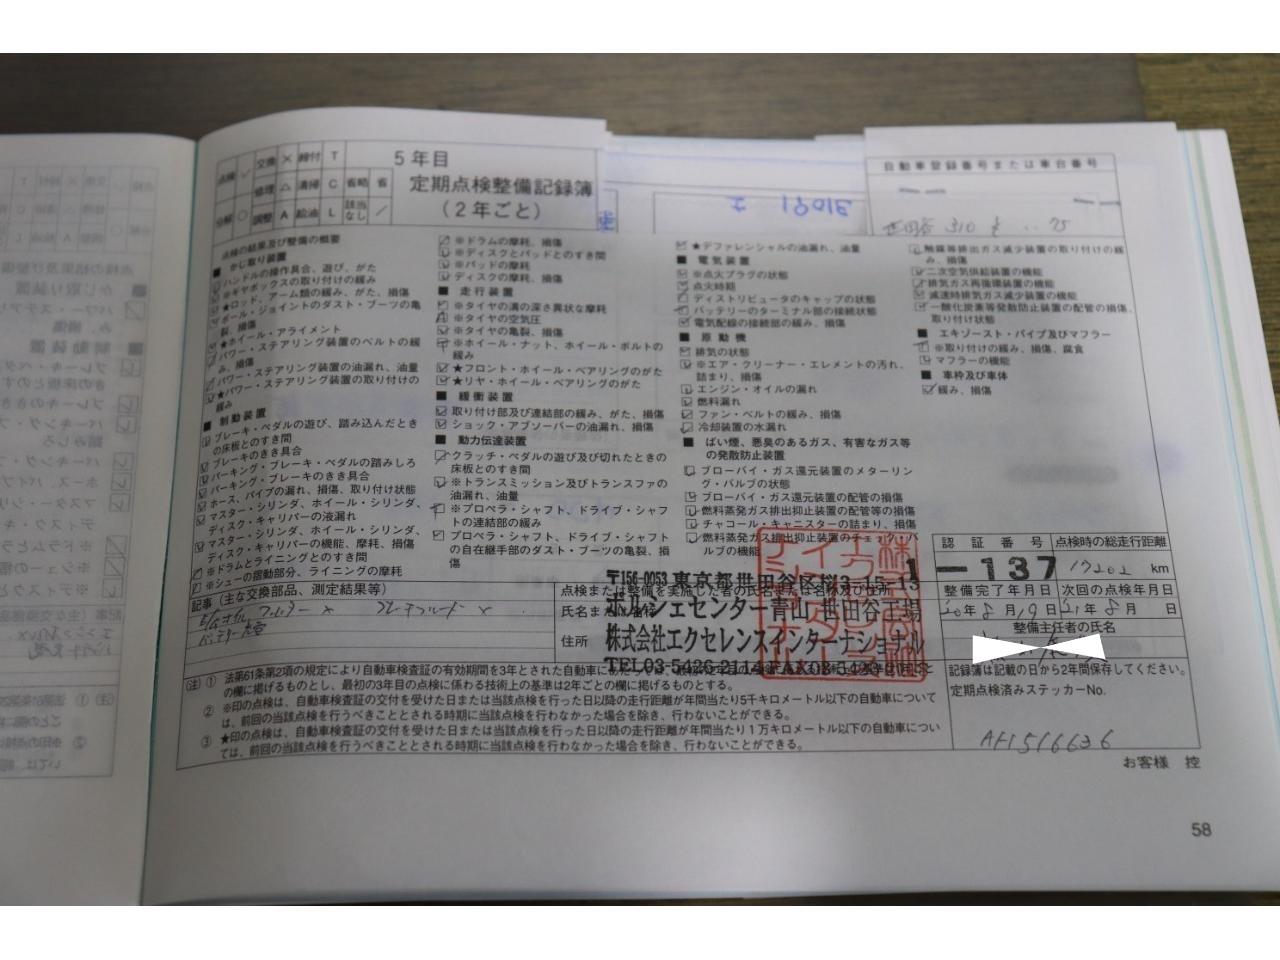 点検 ✓ 交換 × 締付 T
修理 △ 清掃 C 省略 省
分解 ○ 調整 A 給油 L 該当なし ／
5年目
定期点検整備記録簿
（2年ごと）
自動車登録番号または車台番号
世田谷 310
点検の結果及び整備の概要
■ かじ取り装置
ハンドルの操作具合、遊び、がた
※ギヤボックスの取り付けの緩み
★ロッド、アーム類の緩み、がた、損傷
ボール・ジョイントのダスト・ブーツの亀
裂、損傷
★ホイール・アライメント
パワー・ステアリング装置のベルトの緩
み、損傷
パワー・ステアリング装置の油漏れ、油量
★パワー・ステアリング装置の取り付けの
緩み
■ 制動装置
ブレーキ・ペダルの遊び、踏み込んだとき
の床板とのすき間
ブレーキのきき具合
パーキング・ブレーキ・ペダルの踏みしろ
パーキング・ブレーキのきき具合
ホース、パイプの漏れ、損傷、取り付け状態
マスター・シリンダ、ホイール・シリンダ、
ディスク・キャリパーの液漏れ
マスター・シリンダ、ホイール・シリンダ、
ディスク・キャリパーの機能、摩耗、損傷
※ドラムとライニングとのすき間
※シューの摺動部分、ライニングの摩耗
※ドラムの摩耗、損傷
※ディスクとパッドとのすき間
※パッドの摩耗
ディスクの摩耗、損傷
■ 走行装置
※タイヤの溝の深さ異状な摩耗
※タイヤの空気圧
※タイヤの亀裂、損傷
※ホイール・ナット、ホイール・ボルトの
緩み
★フロント・ホイール・ベアリングのがた
★リヤ・ホイール・ベアリングのがた
■ 緩衝装置
取り付け部及び連結部の緩み、がた、損傷
ショック・アブソーバーの油漏れ、損傷
■ 動力伝達装置
クラッチ・ペダルの遊び及び切れたときの
床板とのすき間
※トランスミッション及びトランスファの
油漏れ、油量
※プロペラ・シャフト、ドライブ・シャフ
トの連結部の緩み
プロペラ・シャフト、ドライブ・シャフト
の自在継手部のダスト・ブーツの亀裂、損
傷
★デファレンシャルの油漏れ、油量
■ 電気装置
※点火プラグの状態
点火時期
ディストリビュータのキャップの状態
バッテリーのターミナル部の接続状態
電気配線の接続部の緩み、損傷
■ 原動機
排気の状態
※エア・クリーナー・エレメントの汚れ、
詰まり、損傷
エンジン・オイルの漏れ
燃料漏れ
ファン・ベルトの緩み、損傷
冷却装置の水漏れ
■ ばい煙、悪臭のあるガス、有害なガス等
の発散防止装置
ブローバイ・ガス還元装置のメターリン
グ・バルブの状態
ブローバイ・ガス還元装置の配管の損傷
燃料蒸発ガス排出抑止装置の配管等の損傷
チャコール・キャニスターの詰まり、損傷
燃料蒸発ガス排出抑止装置のチェック・バ
ルブの機能
触媒等排出ガス減少装置の取り付けの緩
み、損傷
二次空気供給装置の機能
排気ガス再循環装置の機能
減速時排気ガス減少装置の機能
一酸化炭素等発散防止装置の配管の損傷、
取り付け状態
■ エキゾースト・パイプ及びマフラー
※取り付けの緩み、損傷、腐食
マフラーの機能
■ 車枠及び車体
緩み、損傷
認証番号 点検時の総走行距離
1-137 17202 km
整備完了年月日 次回の点検年月日
20年8月19日 21年8月 日
整備主任者の氏名
記録簿は記載の日から2年間保存してください。
定期点検済みステッカーNo.
AF1516636
記事（主な交換部品、測定結果等）
点検または整備を実施した者の氏名または名称及び住所
氏名または名称
住所
〒156-0053 東京都世田谷区桜3-15-15
ポルシェセンター青山 世田谷工場
株式会社エクセレンスインターナショナル
（注）① 法第61条第2項の規定により自動車検査証の有効期間を3年とされた自動車にあたっては
の欄に掲げるものとし、最初の3年目の点検に係わる技術上の基準は2年ごとの欄に掲げるものとする。
② ※印の点検は、自動車検査証の交付を受けた日または当該点検を行った日以降の走行距離が年間当たり5千キロメートル以下の自動車について
は、前回の当該点検を行うべきこととされる時期に当該点検を行わなかった場合を除き、行わないことができる。
③ ★印の点検は、自動車検査証の交付を受けた日または当該点検を行った日以降の走行距離が年間当たり1万キロメートル以下の自動車につい
ては、前回の当該点検を行うべきこととされる時期に当該点検を行わなかった場合を除き、行わないことができる。
お客様 控
58